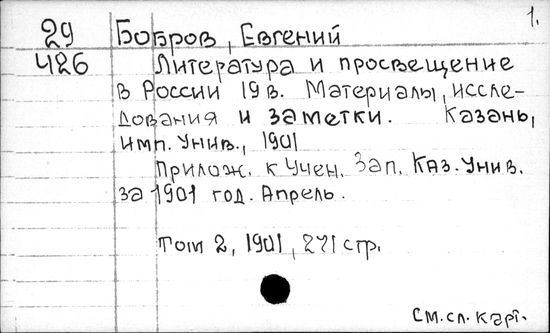 1.
29 Бобров, Евгений
426 Литература и просвещение
в России 19 в. Материалы, иссле-
дования и заметки. Казань,
имп. Унив., 1901
Прилож. к Учен. Зап. Каз. Унив.
за 1901 год. Апрель.
Том 2, 1901, 271 стр.
См. сл. карт.